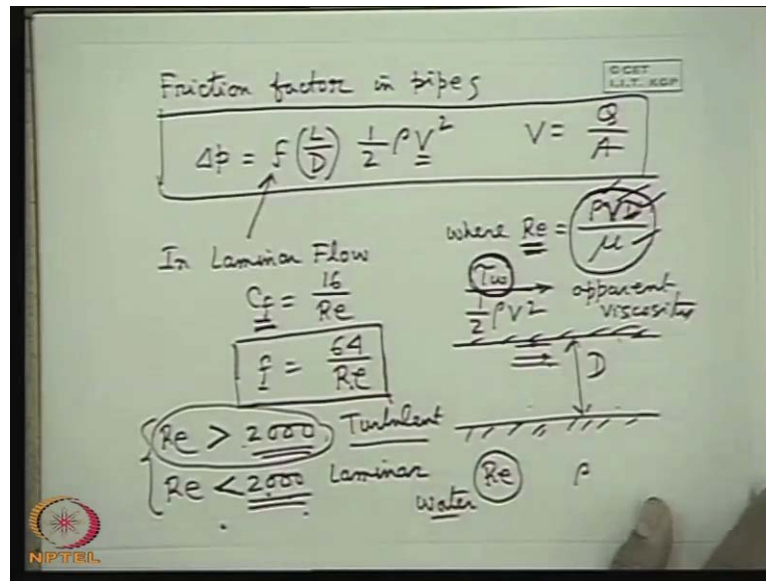 Friction factor in pipes
© CET
I.I.T. KGP
Δp = f (L/D) 1/2 ρV² V = Q/A
In Laminar Flow
where Re = ρVD/μ
Cf = 16/Re
τw / 1/2 ρV² apparent viscosity
f = 64/Re
D
Re > 2000 Turbulent
Re < 2000 Laminar
water Re ρ
NPTEL